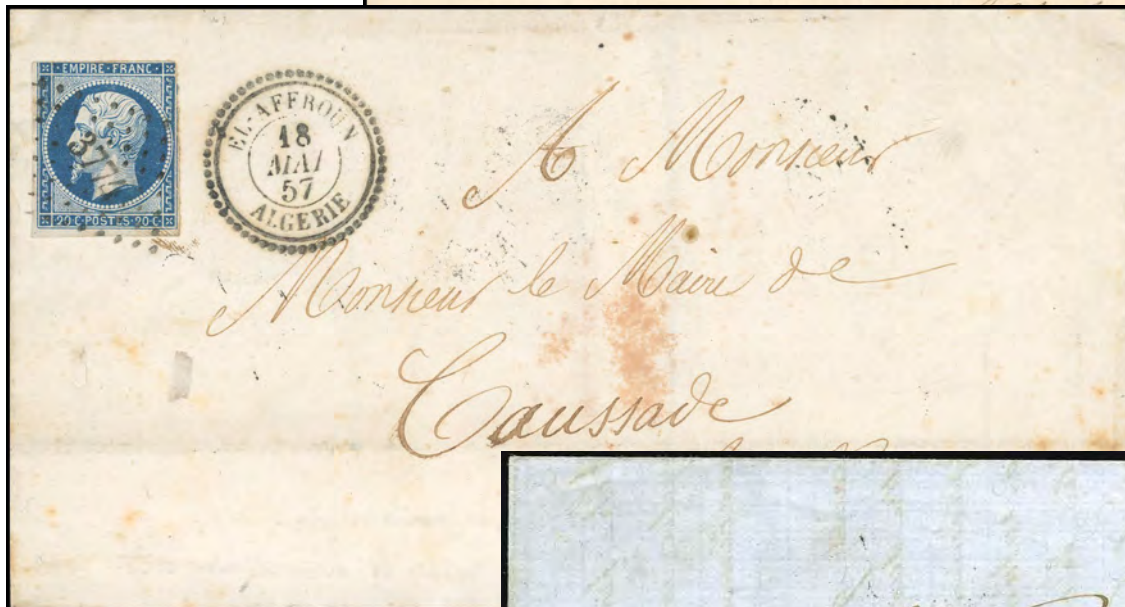 EMPIRE FRANC
20 C POSTES 20 C
EL-AFFROUN
18
MAI
57
ALGERIE
A Monsieur
Monsieur le Maire de
Caussade